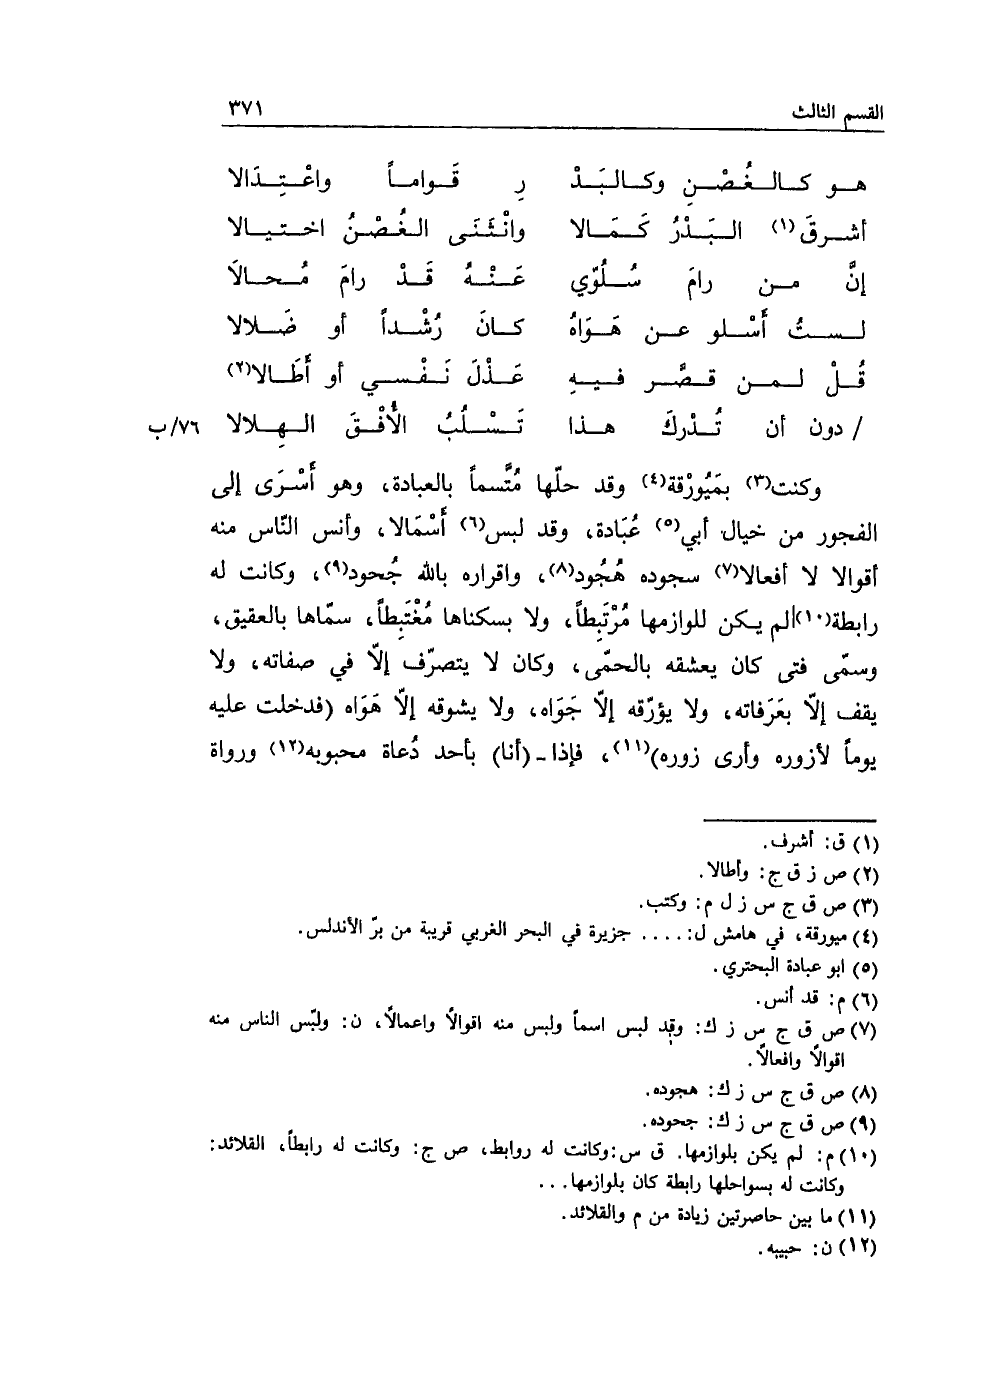 القسم الثالث ٣٧١
هـو كـالـغُصْـنِ وكـالـبَـدْ رِ قَـوامـاً واعْـتِـدَالا
أشـرقَ(١) الـبَـدْرُ كَـمَـالا وانْـثَـنَـى الـغُصْـنُ اخـتـيـالا
إنَّ مـن رامَ سُـلُوّي عَـنْـهُ قَـدْ رامَ مُـحـالاَ
لـسـتُ أَسْـلو عـن هَـوَاهُ كـانَ رُشْـداً أو ضَـلالا
قُـلْ لـمـن قـصَّـر فـيـهِ عَـذْلَ نَـفْـسـي أو أَطَـالا(٢)
/ دون أن تُـدْركَ هـذا تَـسْـلُبُ الأُفْـقَ الـهِـلالا ٧٦/ب
وكنت(٣) بمَيُورْقة(٤) وقد حلّها مُتَّسماً بالعبادة، وهو أَسْرَى إلى
الفجور من خيال أبي(٥) عُبَادة، وقد لبس(٦) أَسْمَالا، وأنس النّاس منه
أقوالا لا أفعالا(٧) سجوده هُجُود(٨)، واقراره بالله جُحود(٩)، وكانت له
رابطة(١٠) لم يكن للوازمها مُرْتَبِطاً، ولا بسكناها مُغْتَبِطاً، سمّاها بالعقيق،
وسمّى فتى كان يعشقه بالحمّى، وكان لا يتصرّف إلاّ في صفاته، ولا
يقف إلاّ بعَرَفاته، ولا يؤرّقه إلاّ جَوَاه، ولا يشوقه إلاّ هَوَاه (فدخلت عليه
يوماً لأزوره وأرى زوره)(١١)، فإذا ـ (أنا) بأحد دُعاة محبوبه(١٢) ورواة
(١) ق: أشرف.
(٢) ص ز ق ج: وأطالا.
(٣) ص ق ج س ز ل م: وكتب.
(٤) ميورقة، في هامش ل: .... جزيرة في البحر الغربي قريبة من برّ الأندلس.
(٥) ابو عبادة البحتري.
(٦) م: قد أنس.
(٧) ص ق ج س ز ك: وقد لبس اسماً ولبس منه اقوالاً واعمالاً، ن: ولبّس الناس منه
اقوالاً وافعالاً.
(٨) ص ق ج س ز ك: هجوده.
(٩) ص ق ج س ز ك: جحوده.
(١٠) م: لم يكن بلوازمها. ق س: وكانت له روابط، ص ج: وكانت له رابطاً، القلائد:
وكانت له بسواحلها رابطة كان بلوازمها...
(١١) ما بين حاصرتين زيادة من م والقلائد.
(١٢) ن: حبيبه.